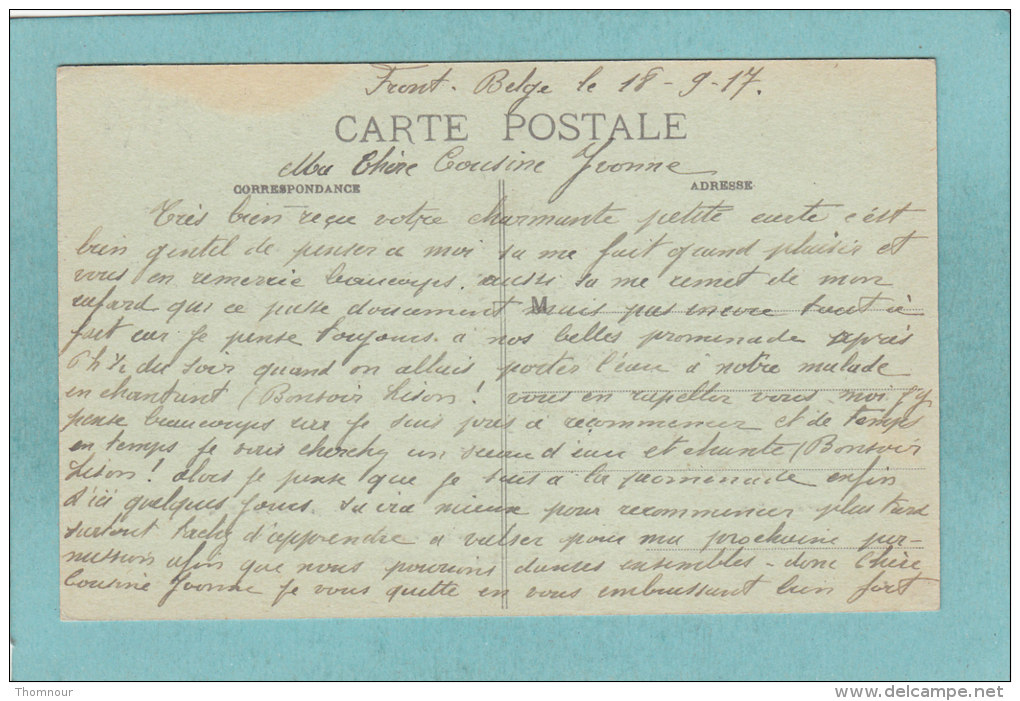 Front. Belge le 18-9-17.
CARTE POSTALE
Ma Chère Cousine Yvonne
CORRESPONDANCE
ADRESSE
Très bien reçue votre charmante petite carte c'est
bien gentil de penser a moi sa me fait grand plaisir et
vous en remercie beaucoups. aussi sa me remet de mon
cafard qui ce passe doucement mais pas encore tout à
M
fait car je pense toujours a nos belles promenade après
6h ½ du soir quand on allais porter l'eau à notre malade
en chantant (Bonsoir Lison! vous en rappeller vous. moi j'y
pense beaucoups car je suis près à recommencer et de temps
en temps je vais cherchy un seau d'eau et chante (Bonsoir
Lison! alors je pense que je suis à la promenade enfin
d'ici quelques jours. sa ira mieux pour recommencer plus tard
surtout tachy d'apprendre a valser pour ma prochaine per-
mission afin que nous pourions danses ensembles - donc Chère
Cousine Yvonne je vous quitte en vous embrassant bien fort
Thomnour
www.delcampe.net